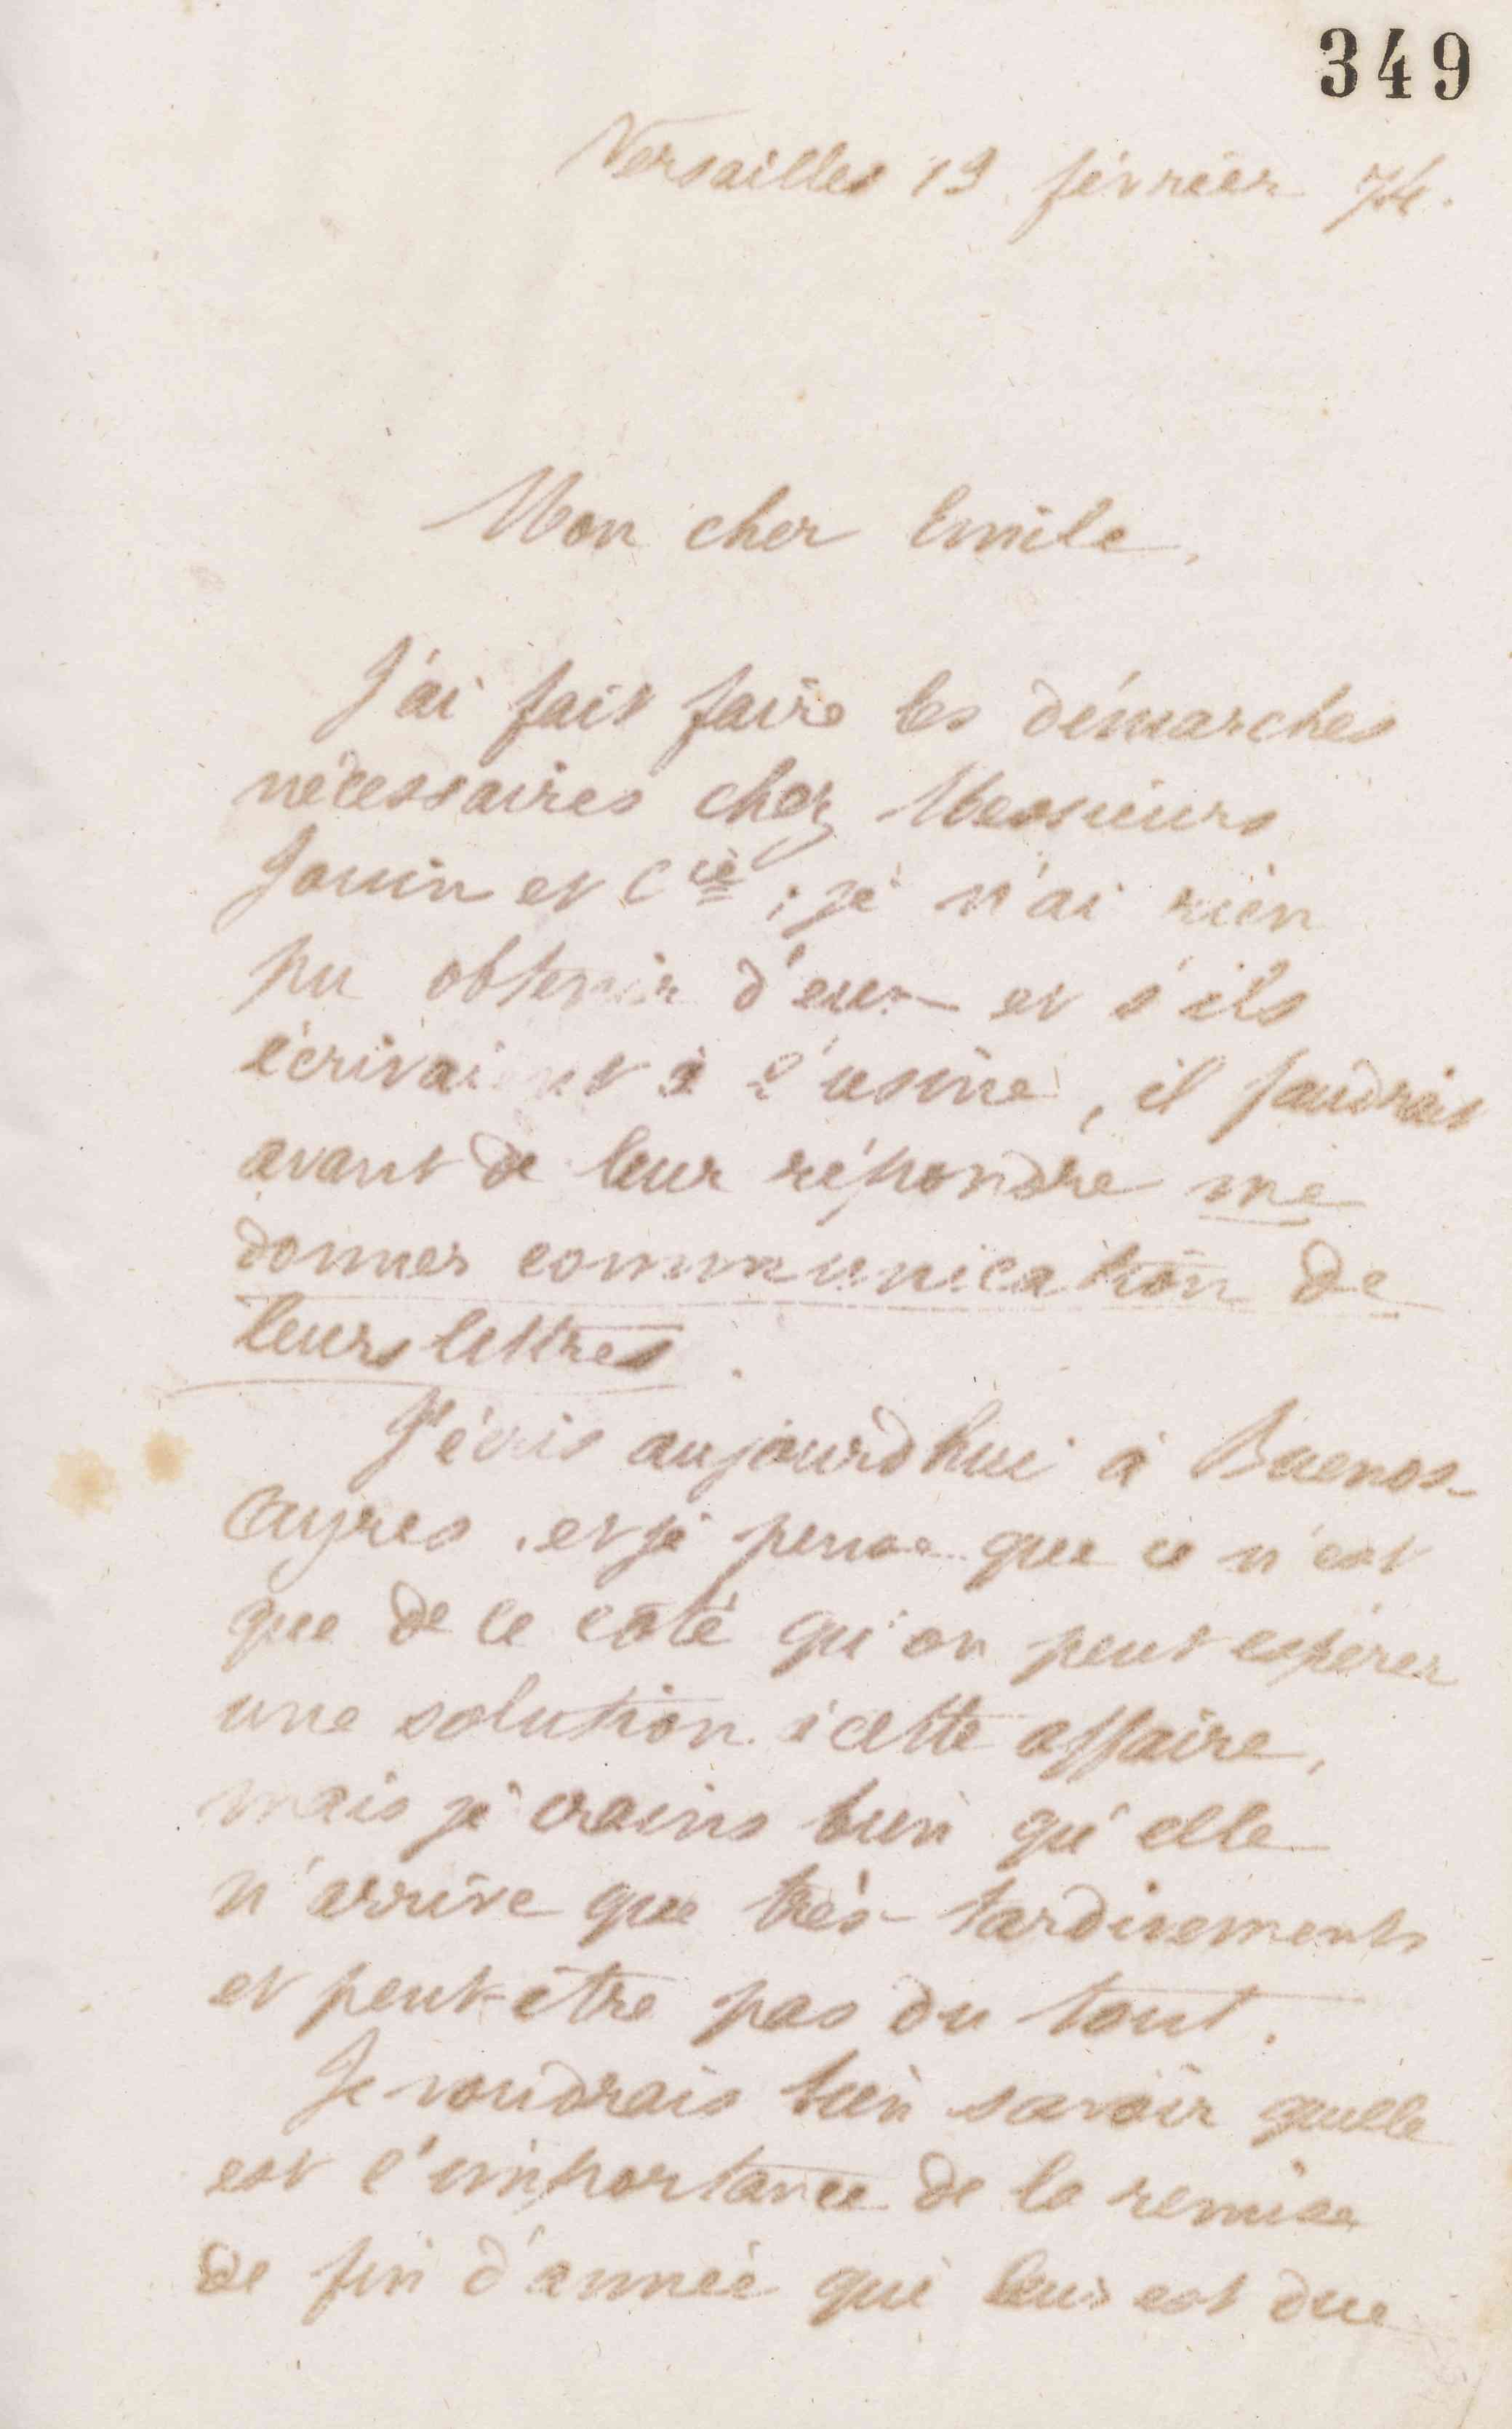 349
Versailles 19 février 74.
Mon cher Emile,
J'ai fait faire les démarches
nécessaires chez Messieurs
Jouin et Cie ; je n'ai rien
pu obtenir d'eux et s'ils
écrivaient à l'usine, il faudrait
avant de leur répondre me
donner communication de
leurs lettres.
J'écris aujourd'hui à Buenos-
Ayres et je pense que ce n'est
que de ce côté qu'on peut espérer
une solution à cette affaire,
mais je crains bien qu'elle
n'arrive que très tardivement
et peut-être pas du tout.
Je voudrais bien savoir quelle
est l'importance de la remise
de fin d'année qui leur est due